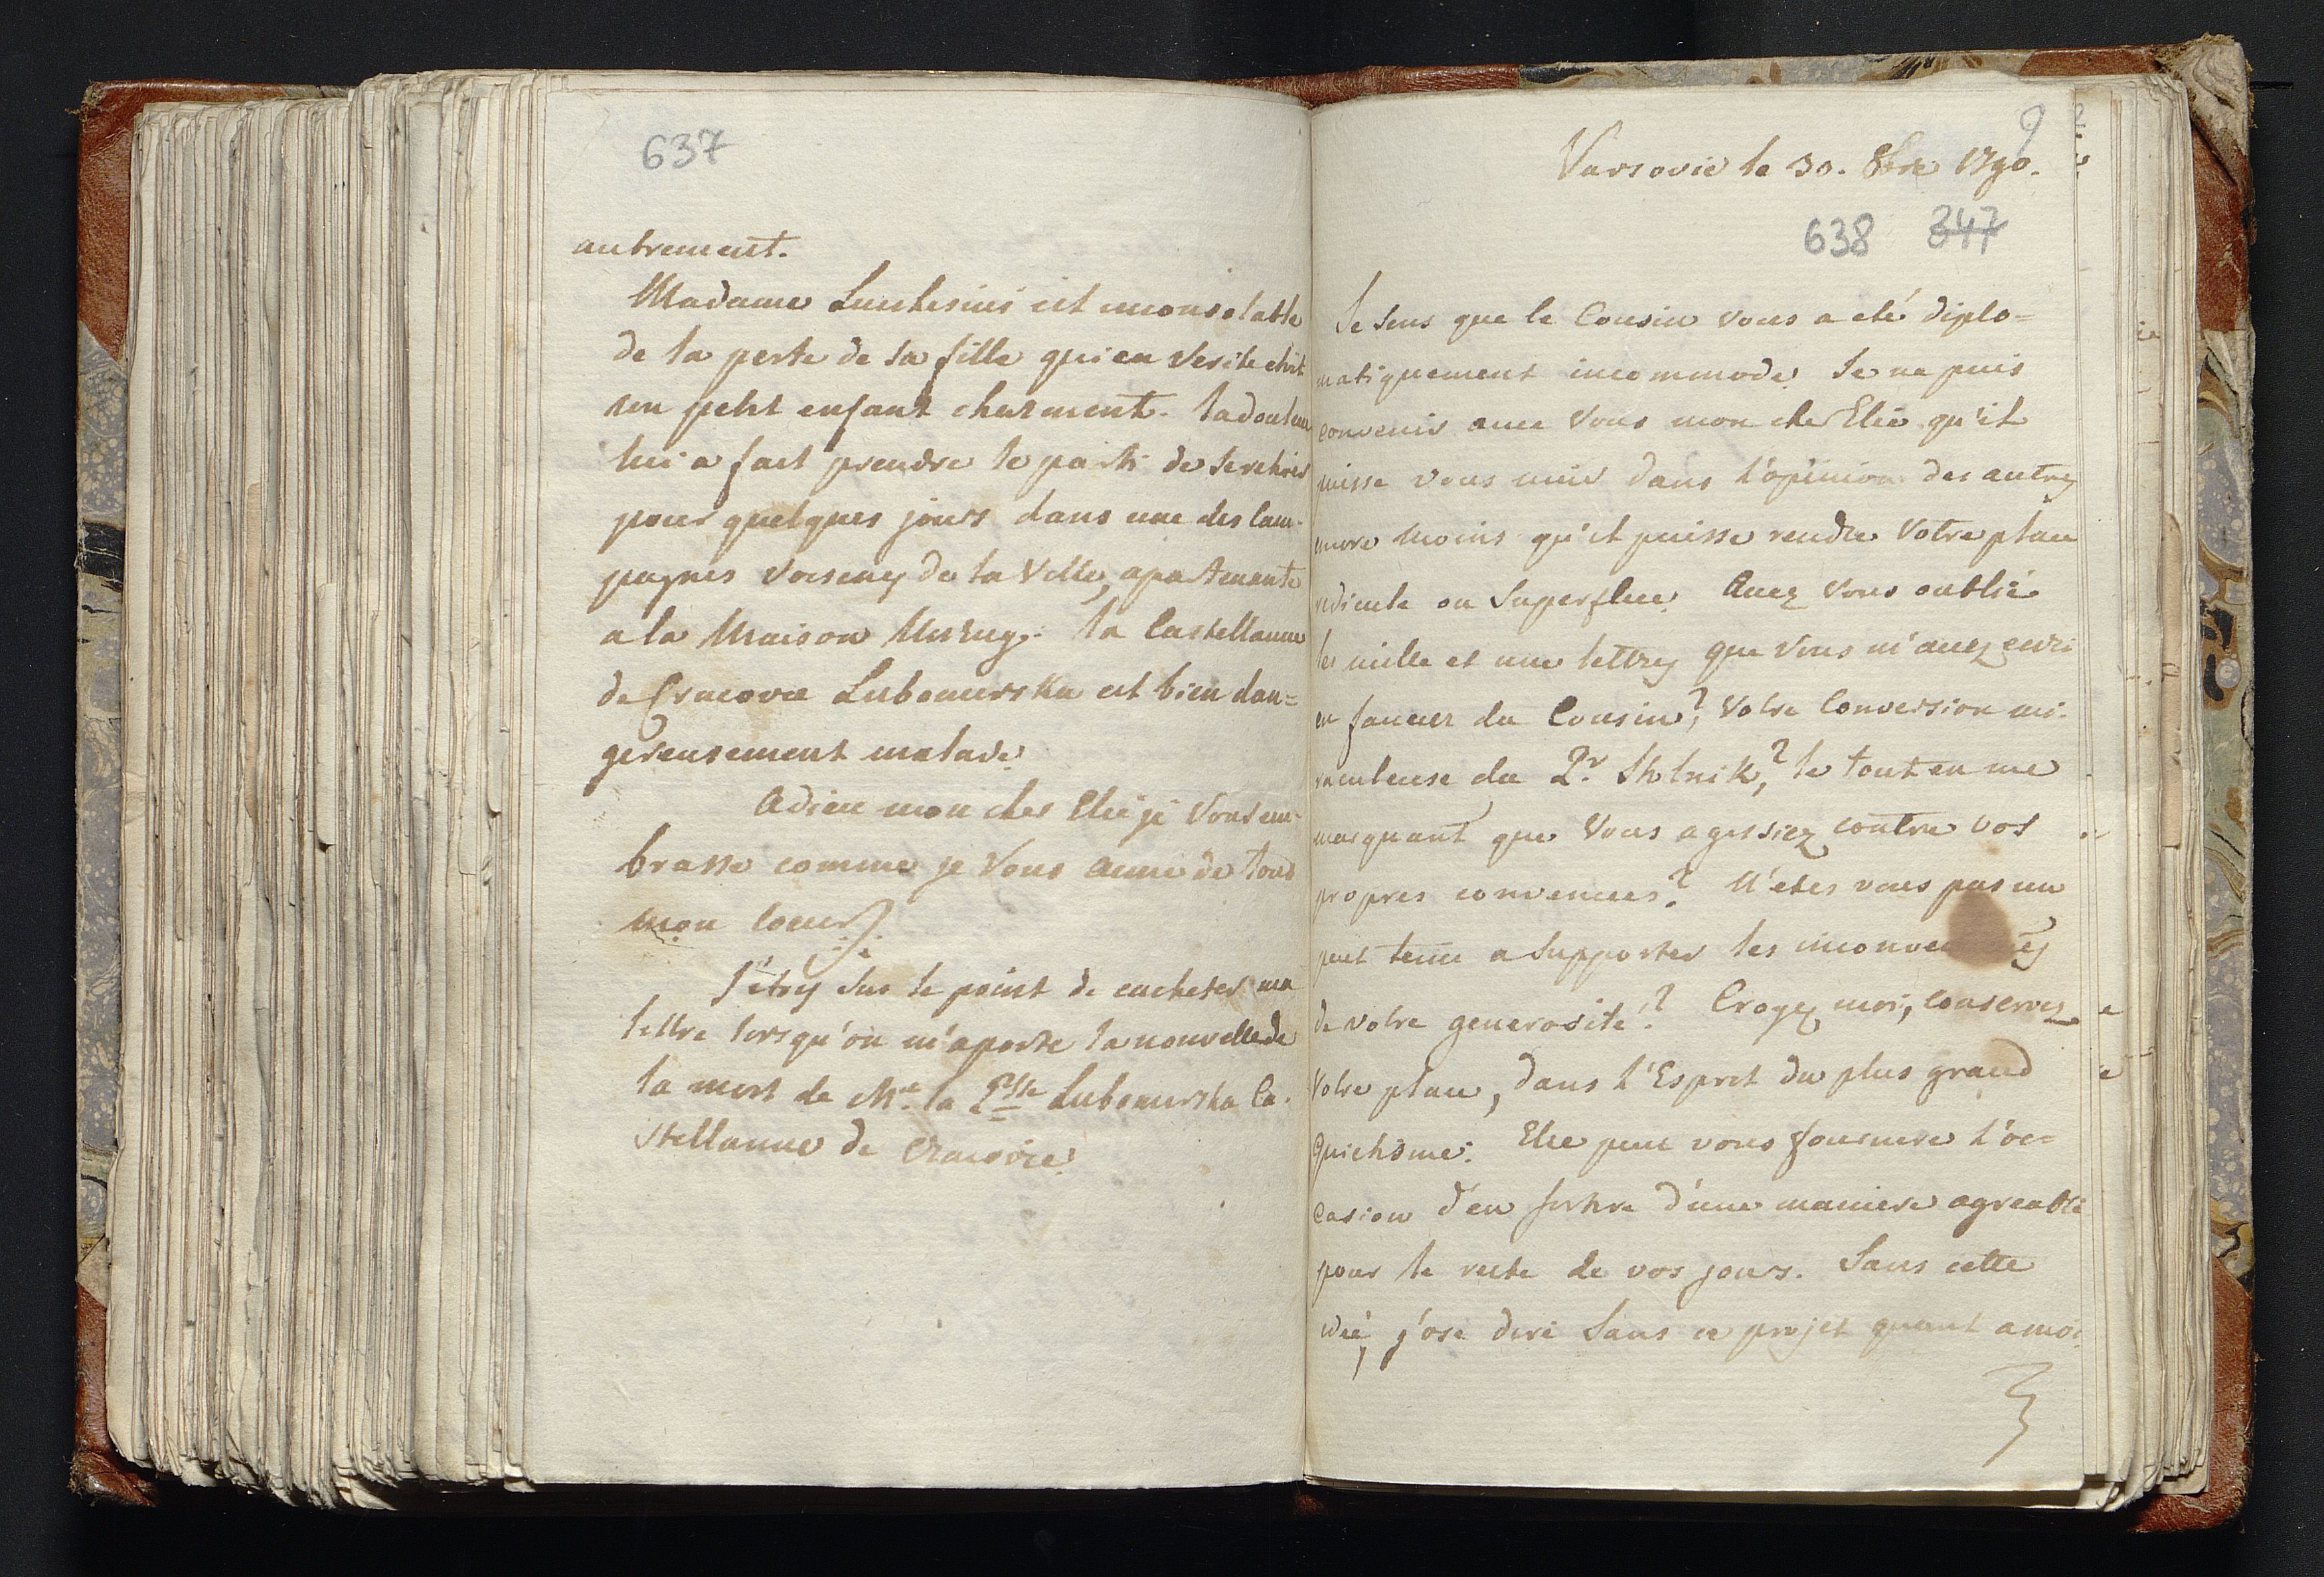 637
autrement.
Madame Lucchesini est inconsolable
de la perte de sa fille qui en verité etoit
un petit enfant charmant. la douleur
lui a fait prendre le parti de se retirer
pour quelques jours dans une des cam-
pagnes voisines de la Ville, apartenante
a la Maison Unrug. la Castellanne
de Cracovie Lubomirska est bien dan=
gereusement malade.
Adieu mon cher Elie je Vous em-
brasse comme je Vous aime de tout
mon coeur
J'étois sur le point de cacheter ma
lettre lorsqu'on m'aporte la nouvelle de
la mort de Me la Psse Lubomirska Ca-
stellanne de Cracovie.
Varsovie le 30. 8bre 1790.
638 347
Je sens que le Cousin vous a eté diplo=
matiquement incommode. Je ne puis
convenir avec Vous mon cher Elie qu'il
puisse vous nuir dans l'opinion des autres
encore moins qu'il puisse rendre Votre place
redicule ou Superflue. Avez Vous oublié
les mille et une lettres que Vous m'avez ecri
en faveur du Cousin? Votre Conversion mi-
raculeuse du Pr Stolnik,? le tout en me
marquant que Vous agissiez contre vos
propres convenences? N'etes vous pas un
peut tenu a supporter les
de votre generosité? Croyez moi, conservez
Votre place, dans l'Esprit du plus grand
Quietisme. Elle peut vous fournire l'oc=
casion d'en sortire d'une maniere agreable
pour le reste de vos jours. Sans cette
ideé, j'ose dire Sans ce projet quant a moi